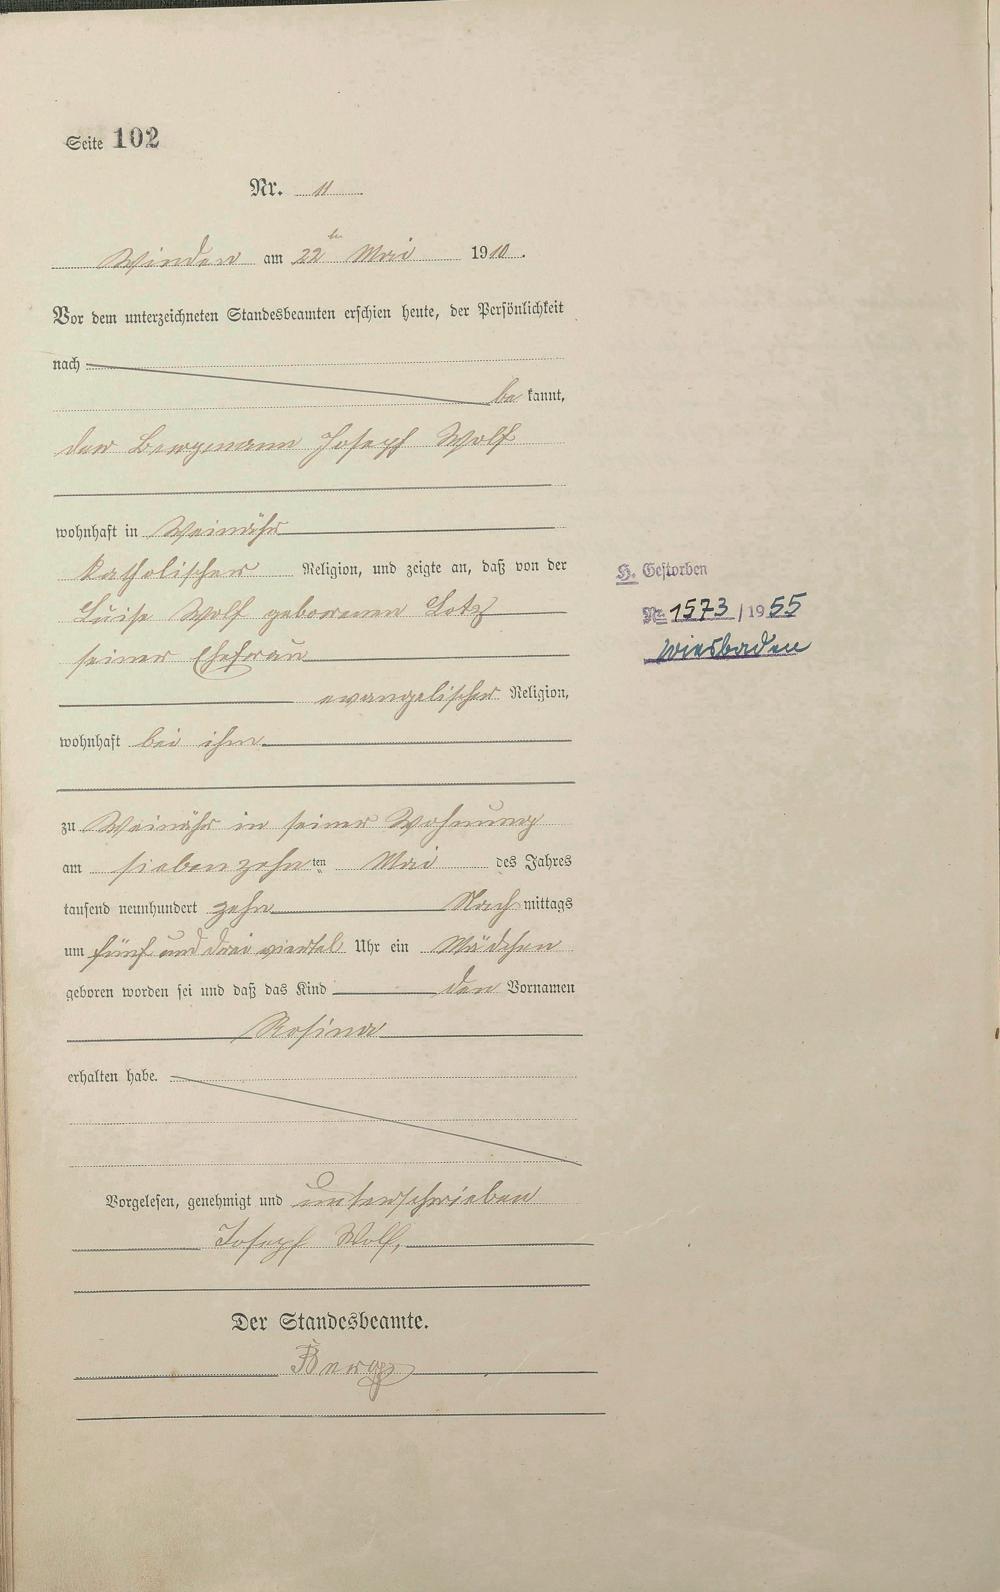 Seite 102
Nr. 11
Winden am 22ten Mai 1910.
Vor dem unterzeichneten Standesbeamten erschien heute, der Persönlichkeit
nach
be kannt,
der Bergmann Joseph Wolf
wohnhaft in Weinähr
katholischer Religion, und zeigte an, daß von der
Luise Wolf geborenen Lotz
seiner Ehefrau
evangelischer Religion,
wohnhaft bei ihm
zu Weinähr in seiner Wohnung
am siebenzehn ten Mai des Jahres
tausend neunhundert zehn Nach mittags
um fünf und drei viertel Uhr ein Mädchen
geboren worden sei und daß das Kind den Vornamen
Rosina
erhalten habe.
Vorgelesen, genehmigt und unterschrieben
Joseph Wolf,
Der Standesbeamte.
Berg
H. Gestorben
Nr. 1573 / 1955
Wiesbaden